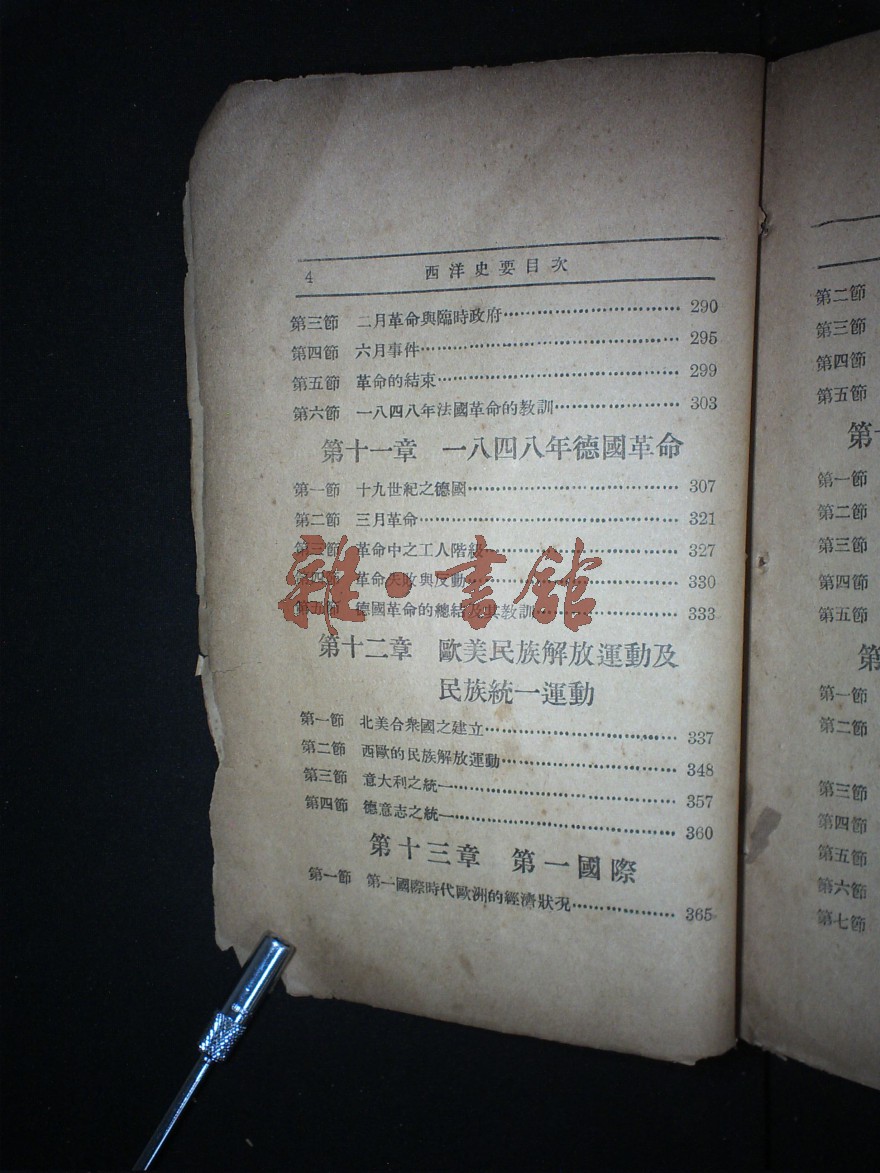 4 西洋史要目次
第三節 二月革命與臨時政府 290
第四節 六月事件 295
第五節 革命的結束 299
第六節 一八四八年法國革命的教訓 303
第十一章 一八四八年德國革命
第一節 十九世紀之德國 307
第二節 三月革命 321
第三節 革命中之工人階級 327
第四節 革命失敗與反動 330
第五節 德國革命的總結及其教訓 333
第十二章 歐美民族解放運動及
民族統一運動
第一節 北美合衆國之建立 337
第二節 西歐的民族解放運動 348
第三節 意大利之統一 357
第四節 德意志之統一 360
第十三章 第一國際
第一節 第一國際時代歐洲的經濟狀况 365
雜·書館
第二節
第三節
第四節
第五節
第十
第一節
第二節
第三節
第四節
第五節
第
第一節
第二節
第三節
第四節
第五節
第六節
第七節